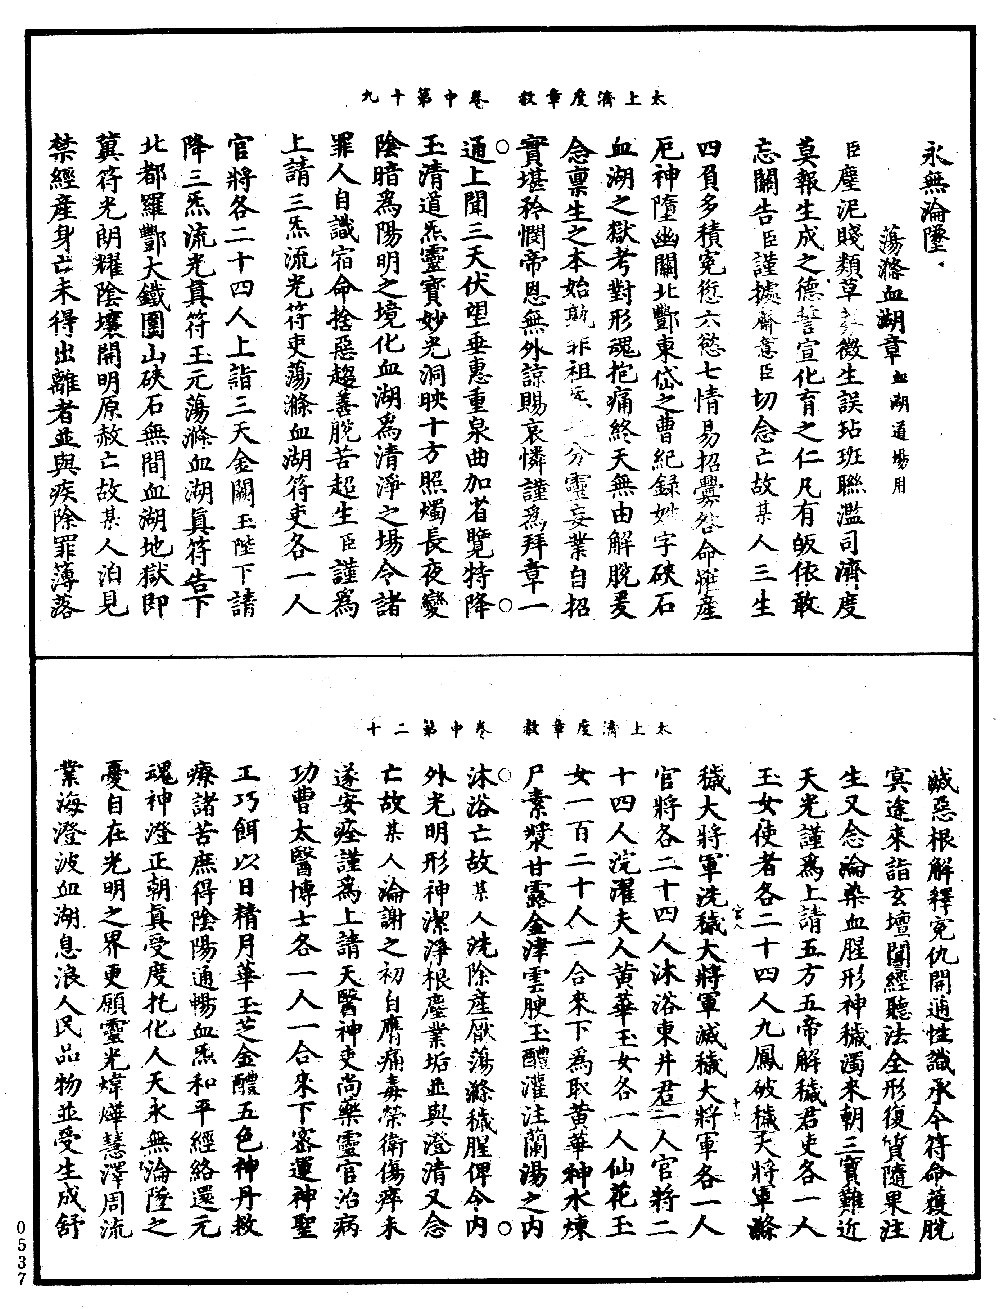 太上濟度章赦　卷中第十九
永無淪墜
蕩滌血湖章血湖道場用
臣塵泥賤類草芥微生誤玷班聯濫司濟度
莫報生成之德誓宣化育之仁凡有皈依敢
忘關告臣謹據齋意臣切念亡故某人三生
四負多積冤愆六慾七情易招釁咎命嬰產
厄神墮幽關北酆東岱之曹紀錄姓字硤石
血湖之獄考對形魂抱痛終天無由解脫爰
念稟生之本始孰非祖炁分靈妄業自招
實堪矜憫帝恩無外諒賜哀憐謹為拜章一
通上聞三天伏望垂惠重泉曲加省覽特降
玉清道炁靈寶妙光洞映十方照燭長夜變
陰暗為陽明之境化血湖為清淨之場令諸
罪人自識宿命捨惡趨善脫苦超生臣謹為
上請三炁流光符吏蕩滌血湖符吏各一人
官將各二十四人上詣三天金闕玉陛下請
降三炁流光真符玉元蕩滌血湖真符告下
北都羅酆大鐵圍山硤石無間血湖地獄即
冀符光朗耀陰壤開明原赦亡故某人洎見
禁經產身亡未得出離者並與疾除罪簿落
太上濟度章赦　卷中第二十
滅惡根解釋冤仇開通性識承今符命獲脫
冥途來詣玄壇聞經聽法全形復質隨果注
生又念淪染血腥形神穢濁來朝三寶難近
天光謹為上請五方五帝解穢君吏各一人
玉女使者各二十四人九鳳破穢大將軍滌
穢大將軍洗穢大將軍滅穢大將軍各一人
官將各二十四人沐浴東井君一人官將二
十四人浣濯夫人黃華玉女各一人仙花玉
女一百二十人一合來下為取黃華神水煉
尸素漿甘露金津雲腴玉醴灌注蘭湯之內
沐浴亡故某人洗除產厭蕩滌穢腥俾令內
外光明形神潔淨根塵業垢並與澄清又念
亡故某人淪謝之初自膺痛毒榮衛傷瘁未
遂安痊謹為上請天醫神吏尚藥靈官治病
功曹太醫博士各一人一合來下審運神聖
工巧餌以日精月華玉芝金醴五色神丹救
療諸苦庶得陰陽通暢血炁和平經絡還元
魂神澄正朝真受度托化人天永無淪墜之
憂自在光明之界更願靈光煒燁慧澤周流
業海澄波血湖息浪人民品物並受生成舒
0537